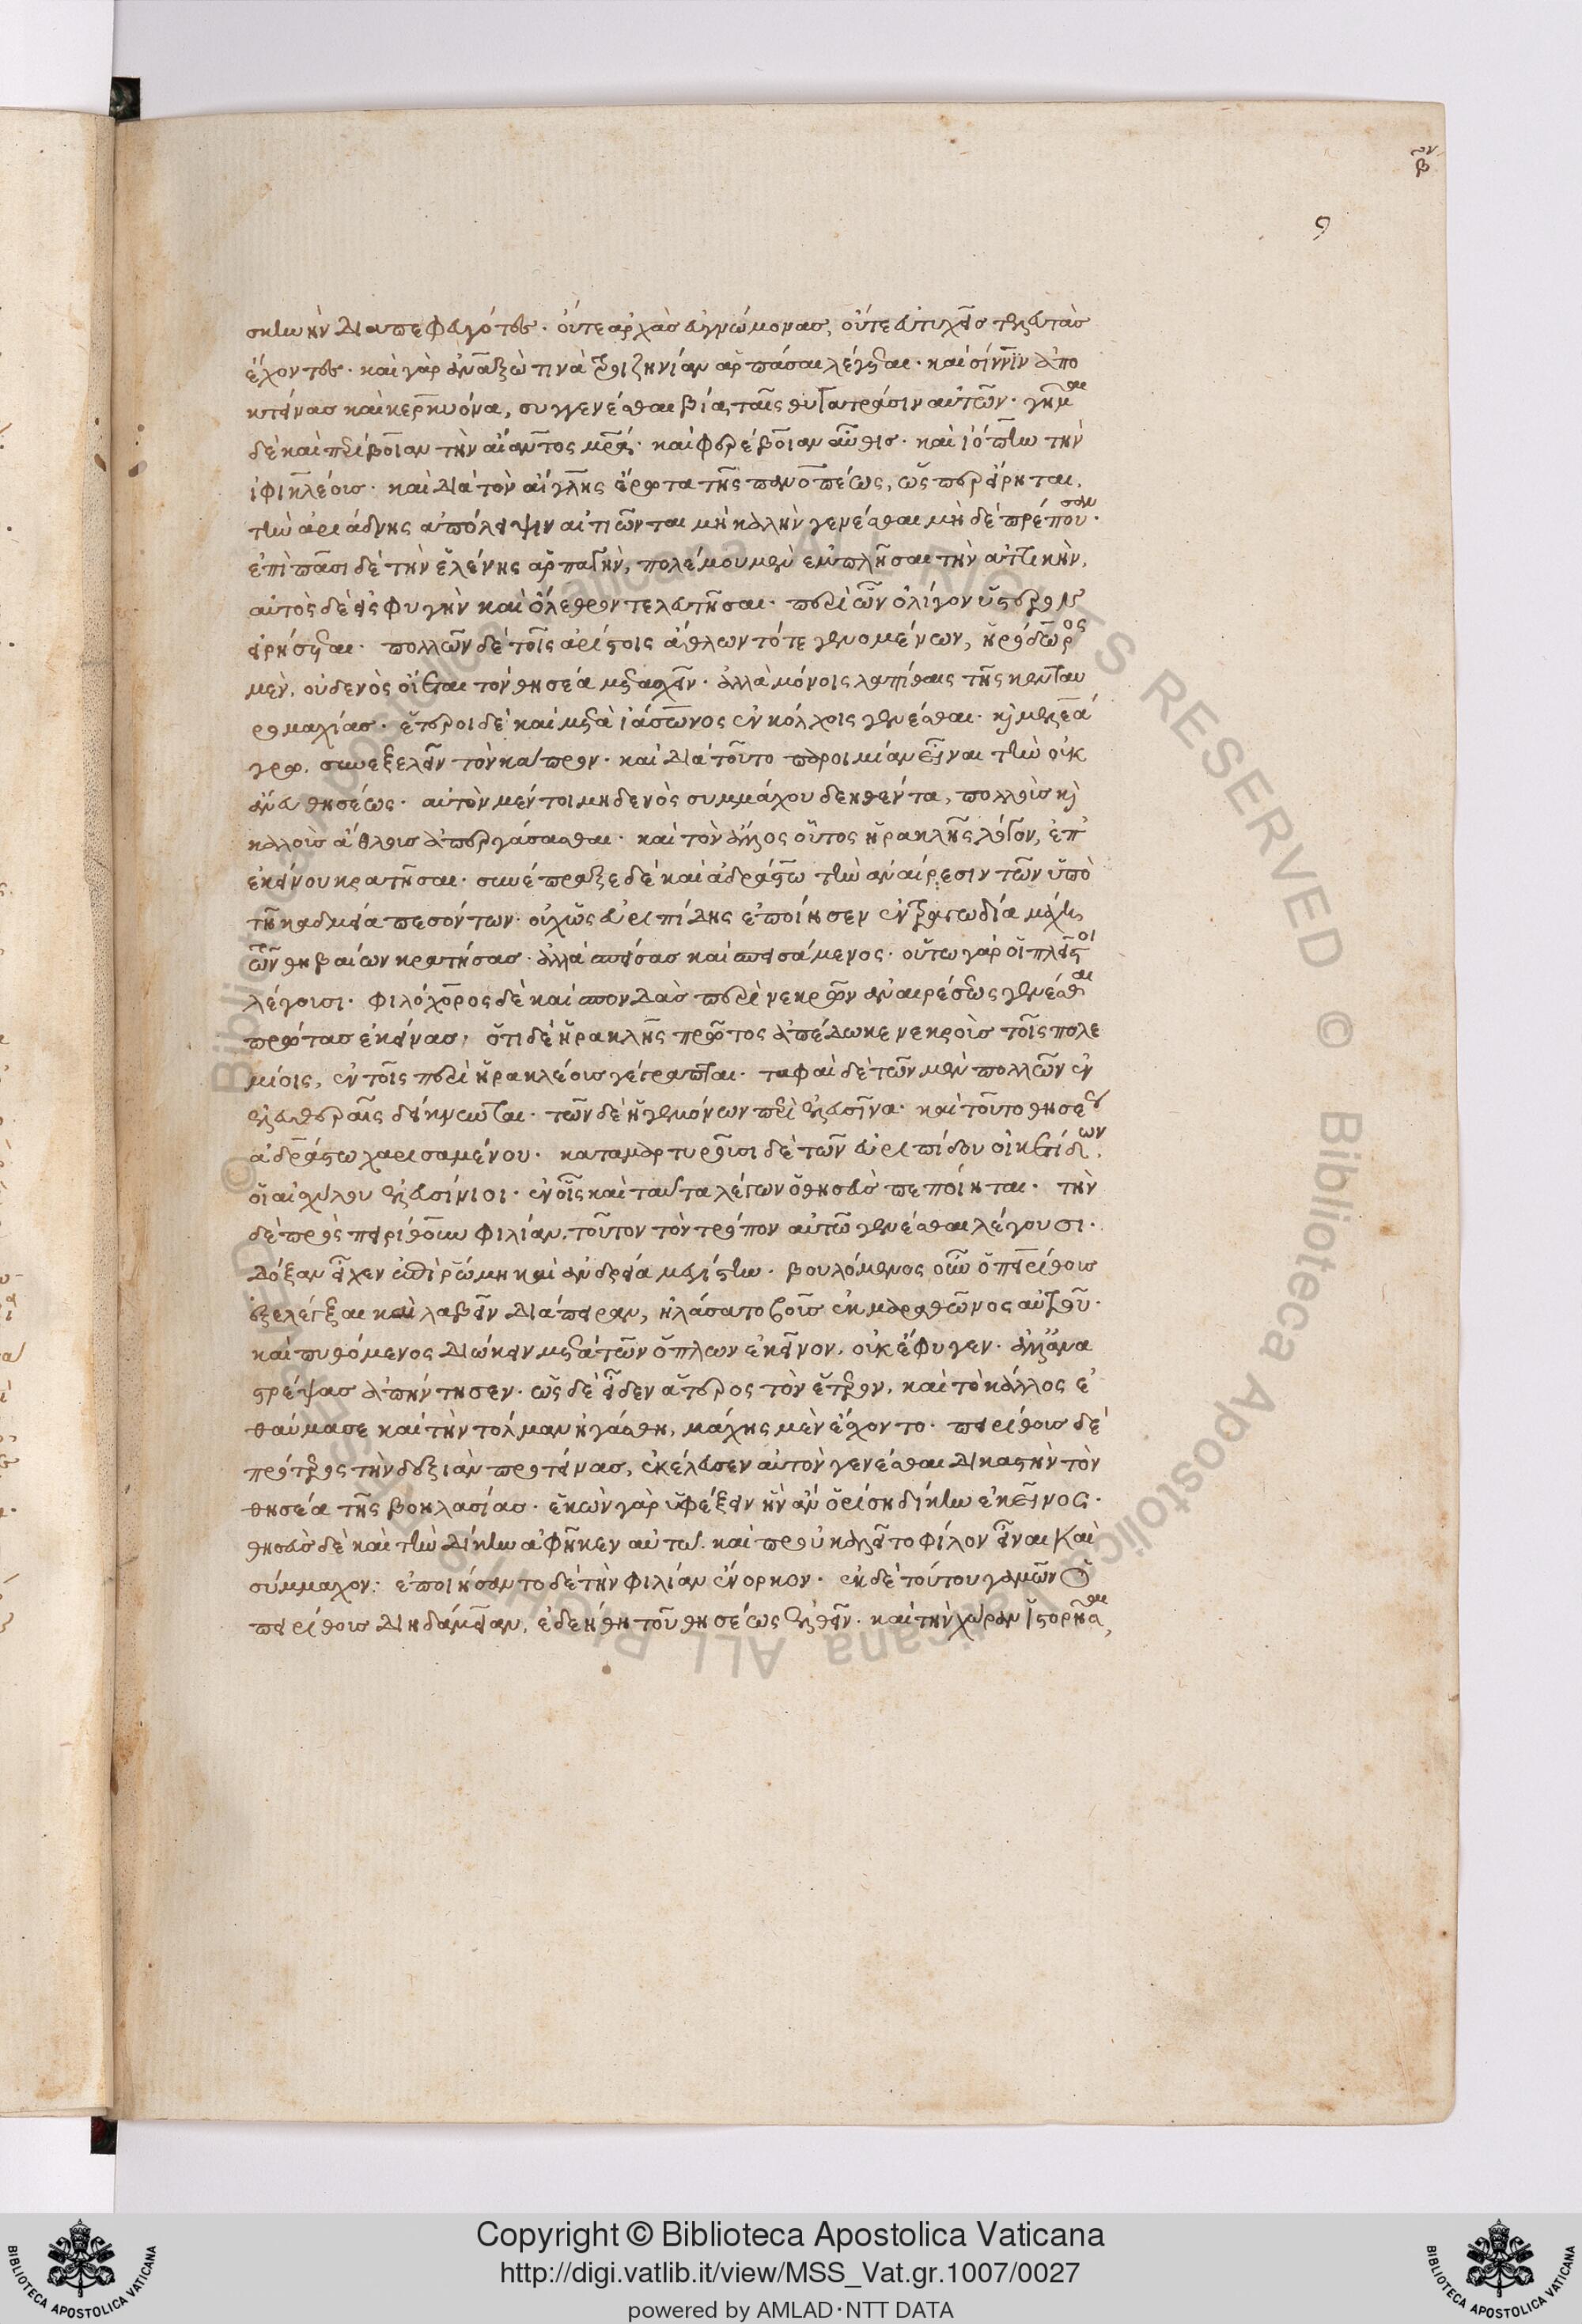 β̅ον
9
σκηνὴν διαπεφευγότες. οὔτε ἀρχὰς εὐγνώμονας, οὔτε εὐτυχεῖς τελευτὰς
ἔχοντες. καὶ γὰρ ἀναξώ τινα τροιζηνίαν ἁρπάσαι λέγεται. καὶ σίννιν ἀπο
κτείνας καὶ κερκυόνα, συγγενέσθαι βίᾳ ταῖς θυγατράσιν αὐτῶν. γῆμαι
δὲ καὶ περίβοιαν τὴν αἴαντος μητέρα. καὶ φερέβοιαν αὖθις. καὶ ἰόπην τὴν
ἰφικλέους. καὶ διὰ τὸν αἴγλης ἔρωτα τῆς πανοπέως, ὡς προείρηται,
τὴν ἀριάδνης ἀπόλειψιν αἰτιῶνται μὴ καλὴν γενέσθαι μὴ δὲ πρέπουσαν.
ἐπὶ πᾶσι δὲ τὴν ἑλένης ἁρπαγὴν, πολέμου μὲν ἐμπλῆσαι τὴν ἀττικὴν,
αὐτὸς δὲ εἰς φυγὴν καὶ ὄλεθρον τελευτῆσαι. περὶ ὧν ὀλίγον ὕστερον
εἰρήσεται. πολλῶν δὲ τοῖς ἀρίστοις ἄθλων τότε γενομένων, ἡρόδωρος
μὲν, οὐδενὸς οἴεται τὸν θησέα μετασχεῖν. ἀλλὰ μόνοις λαπίθαις τῆς κενταυ
ρομαχίας. ἕτεροι δὲ καὶ μετὰ ἰάσωνος ἐν κόλχοις γενέσθαι. καὶ μελεά
γρω, συνεξελεῖν τὸν κάπρον. καὶ διὰ τοῦτο παροιμίαν εἶναι τὴν οὐκ
ἄνευ θησέως. αὐτὸν μέντοι μηδενὸς συμμάχου δεηθέντα, πολλοὺς καὶ
καλοὺς ἄθλους ἀπεργάσασθαι. καὶ τὸν ἄλλος οὗτος ἡρακλῆς λόγον, ἐπ'
ἐκείνου κρατῆσαι. συνέπραξε δὲ καὶ ἀδράστω τὴν ἀναίρεσιν τῶν ὑπὸ
τῆ καδμεία πεσόντων. οὐχ ὡς εὐριπίδης ἐποίησεν ἐν τραγωδία μάχη
τῶν θηβαίων κρατήσας. ἀλλὰ πείσας καὶ σπεισάμενος. οὕτω γὰρ οἱ πλεῖστοι
λέγουσι. φιλόχορος δὲ καὶ σπονδὰς περὶ νεκρῶν ἀναιρέσεως γενέσθαι
πρώτας ἐκείνας. ὅτι δὲ ἡρακλῆς πρῶτος ἀπέδωκε νεκροὺς τοῖς πολε
μίοις, ἐν τοῖς περὶ ἡρακλέους γέγραπται. ταφαὶ δὲ τῶν μὲν πολλῶν ἐν
ἐλευθεραῖς δείκνυνται. τῶν δὲ ἡγεμόνων περὶ ἐλευσῖνα. καὶ τοῦτο θησέως
ἀδράστω χαρισαμένου. καταμαρτυροῦσι δὲ τῶν εὐριπίδου οἰκετίδων,
οἱ αἰσχύλου ἐλευσίνιοι. ἐν οἷς καὶ ταῦτα λέγων ὁ θησεὺς πεποίηται. τὴν
δὲ πρὸς πειρίθουν φιλίαν, τοῦτον τὸν τρόπον αὐτῶ γενέσθαι λέγουσι.
δόξαν εἶχεν ἐπὶ ῥώμη καὶ ἀνδρεία μεγίστην. βουλόμενος οὖν ὁ πειρίθους
ἐξελέγξαι καὶ λαβεῖν διάπειραν, ἠλάσατο βοῦς ἐκ μαραθῶνος αὐτοῦ.
καὶ πυθόμενος διώκειν μετὰ τῶν ὅπλων ἐκεῖνον, οὐκ ἔφυγεν. ἀλλ' ἀνα
στρέψας ἀπήντησεν. ὡς δὲ εἶδεν ἅτερος τὸν ἕτερον, καὶ τὸ κάλλος ἐ
θαύμασε καὶ τὴν τόλμαν ἠγάσθη, μάχης μὲν ἔσχοντο. πειρίθους δὲ
πρότερος τὴν δεξιὰν προτείνας, ἐκέλευσεν αὐτὸν γενέσθαι δικαστὴν τὸν
θησέα τῆς βοηλασίας. ἑκὼν γὰρ ὑφέξειν ἣν ἂν ὁρίση δίκην ἐκεῖνος.
θησεὺς δὲ καὶ τὴν δίκην ἀφῆκεν αὐτῶ. καὶ προὐκαλεῖτο φίλον εἶναι καὶ
σύμμαχον: ἐποιήσαντο δὲ τὴν φιλίαν ἔνορκον. ἐκ δὲ τούτου γαμῶν ὁ
πειρίθους δηδάμειαν, ἐδεήθη τοῦ θησέως ἐλθεῖν. καὶ τὴν χώραν ἱστορῆσαι,
Copyright © Biblioteca Apostolica Vaticana
http://digi.vatlib.it/view/MSS_Vat.gr.1007/0027
powered by AMLAD·NTT DATA
BIBLIOTECA APOSTOLICA VATICANA
BIBLIOTECA APOSTOLICA VATICANA
© Biblioteca Apostolica Vaticana ALL RIGHTS RESERVED © Biblioteca Apostolica Vaticana ALL RIGHTS RESERVED